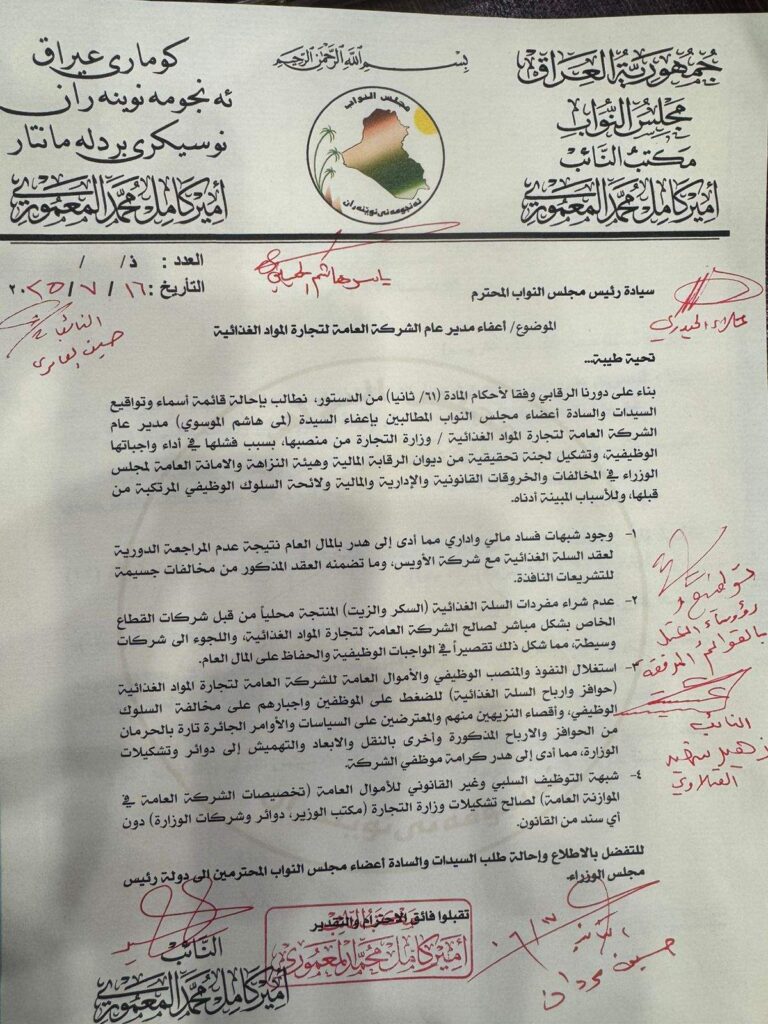 بسم الله الرحمن الرحيم
جمهورية العراق
مجلس النواب
مكتب النائب
أمير كامل محمد المعموري
كوماری عیراق
ئه نجومه نوینه ران
نوسیکری بردله مانتار
أمير كامل محمد المعموري
مجلس النواب
ئه نجومه نی نوێنه ران
العدد : ذ/ /
التأريخ : ١٦ / ٧ / ٢٠٢٥
ياسر هاشم
علاء الحيدري
النائب
حسين العامري
سيادة رئيس مجلس النواب المحترم
الموضوع/ أعفاء مدير عام الشركة العامة لتجارة المواد الغذائية
تحية طيبة...
بناء على دورنا الرقابي وفقا لأحكام المادة (٦١/ ثانيا) من الدستور، نطالب بإحالة قائمة أسماء وتواقيع
السيدات والسادة أعضاء مجلس النواب المطالبين بإعفاء السيدة (لمى هاشم الموسوي) مدير عام
الشركة العامة لتجارة المواد الغذائية / وزارة التجارة من منصبها، بسبب فشلها في أداء واجباتها
الوظيفية، وتشكيل لجنة تحقيقية من ديوان الرقابة المالية وهيئة النزاهة والامانة العامة لمجلس
الوزراء في المخالفات والخروقات القانونية والإدارية والمالية ولائحة السلوك الوظيفي المرتكبة من
قبلها، وللأسباب المبينة أدناه.
١- وجود شبهات فساد مالي واداري مما أدى إلى هدر بالمال العام نتيجة عدم المراجعة الدورية
لعقد السلة الغذائية مع شركة الأويس، وما تضمنه العقد المذكور من مخالفات جسيمة
للتشريعات النافذة.
٢- عدم شراء مفردات السلة الغذائية (السكر والزيت) المنتجة محلياً من قبل شركات القطاع
الخاص بشكل مباشر لصالح الشركة العامة لتجارة المواد الغذائية، واللجوء الى شركات
وسيطة، مما شكل ذلك تقصيراً في الواجبات الوظيفية والحفاظ على المال العام.
٣- استغلال النفوذ والمنصب الوظيفي والأموال العامة للشركة العامة لتجارة المواد الغذائية
(حوافز وارباح السلة الغذائية) للضغط على الموظفين واجبارهم على مخالفة السلوك
الوظيفي، وأقصاء النزيهين منهم والمعترضين على السياسات والأوامر الجائرة تارة بالحرمان
من الحوافز والارباح المذكورة وأخرى بالنقل والابعاد والتهميش إلى دوائر وتشكيلات
الوزارة، مما أدى إلى هدر كرامة موظفي الشركة.
٤- شبهة التوظيف السلبي وغير القانوني للأموال العامة (تخصيصات الشركة العامة في
الموازنة العامة) لصالح تشكيلات وزارة التجارة (مكتب الوزير، دوائر وشركات الوزارة) دون
أي سند من القانون.
للتفضل بالاطلاع وإحالة طلب السيدات والسادة أعضاء مجلس النواب المحترمين الى دولة رئيس
مجلس الوزراء.
بالقوائم المرفقة
النائب
زهير
الفتلاوي
تقبلوا فائق الاحترام والتقدير
أمير كامل محمد المعموري
النائب
أمير كامل محمد المعموري
النائب
حسين